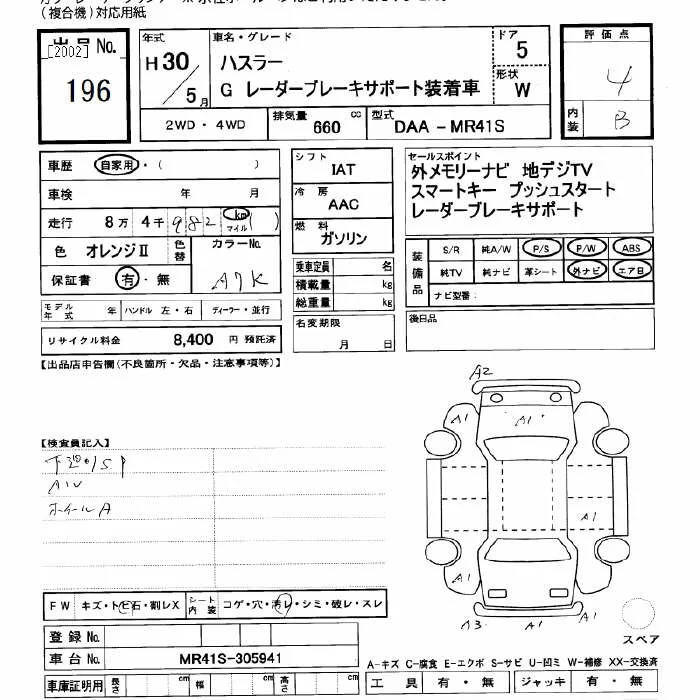 (複合機)対応用紙
出品 No.
[2002]
196
年式
H30/5月
車名・グレード
ハスラー
G レーダーブレーキサポート装着車
ドア
5
形状
W
評価点
4
内装
B
2WD・4WD
排気量 660 cc
型式 DAA-MR41S
車歴 自家用・( )
車検 年 月
走行 8万 4千 982 km マイル ( )
色 オレンジⅡ
色替
カラーNo.
A7K
保証書 有・無
シフト
IAT
冷房
AAC
燃料
ガソリン
乗車定員 名
積載量 kg
総重量 kg
セールスポイント
外メモリーナビ 地デジTV
スマートキー プッシュスタート
レーダーブレーキサポート
装備品
S/R 純A/W P/S P/W ABS
純TV 純ナビ 革シート 外ナビ エアB
ナビ型番:
モデル年式 年 ハンドル 左・右 ディーラー・並行
名変期限
月 日
後日品
リサイクル料金 8,400 円 預託済
【出品店申告欄(不良箇所・欠品・注意事項等)】
【検査員記入】
AIV
ホイールA
A2
A1 A1 A1
A1
A1 A1
A3
スペア
FW キズ・トビ石・割レX シート内装 コゲ・穴・汚レ・シミ・破レ・スレ
登録 No.
車台 No. MR41S-305941
車庫証明用 長さ cm 幅 cm 高さ cm
A-キズ C-腐食 E-エクボ S-サビ U-凹ミ W-補修 XX-交換済
工具 有・無 ジャッキ 有・無